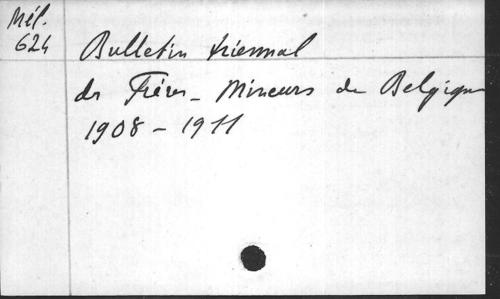 Mél.
624
Bulletin triennal
des Frères-Mineurs de Belgique
1908-1911